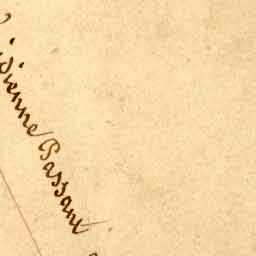 idienne Passant